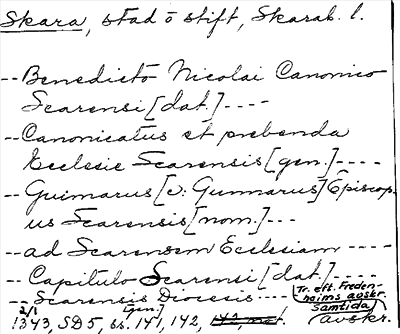 Skara, stad o stift, Skarab. l.
-- Benedicto Nicolai Canonico
Scarensi [dat.] ----
-- Canonicatus et prebenda
Ecclesie Scarensis [gen.] ----
-- Guimarus [o: Gunnarus] Episcop-
us Scarensis [nom.] ---
-- ad Scarensem Ecclesiam ----
-- Capitulo Scarensi [dat.] ----
-- Scarensis Diocesis ---- [gen.]
Tr. eft. Freden-
heims avskr.
Samtida
avskr.
2/1
1343, SD 5, s. 141, 142,